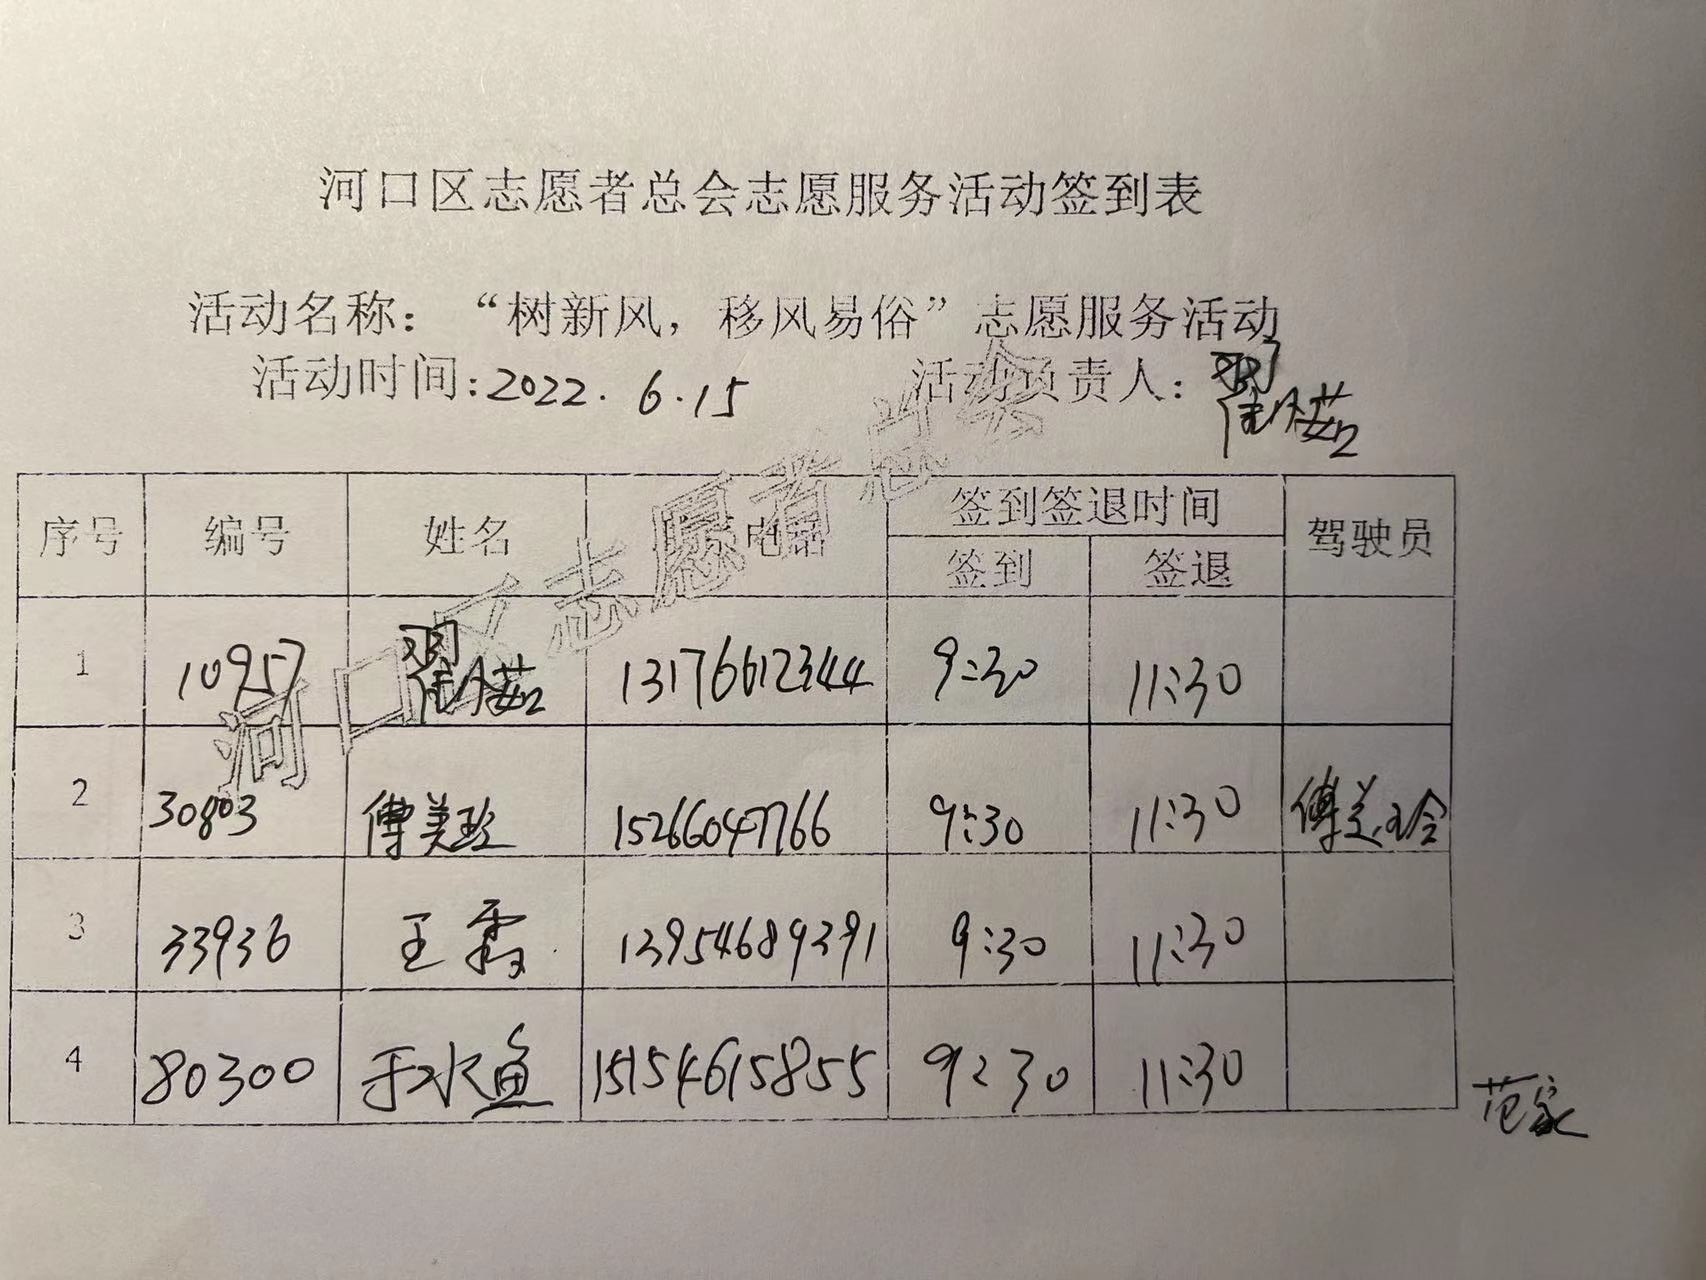 河口区志愿者总会志愿服务活动签到表
活动名称：“树新风，移风易俗”志愿服务活动
活动时间：2022.6.15 活动负责人：翟
序号 编号 姓名 电话 签到签退时间 驾驶员
签到 签退
1 10957 翟 13176612344 9:30 11:30
2 30803 傅美玲 15266047766 9:30 11:30 傅美玲
3 33936 王霞 13954689391 9:30 11:30
4 80300 于水鱼 15154615855 9:30 11:30
范家
河口区志愿者总会